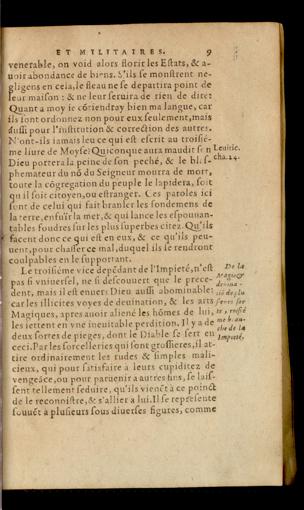 ET MILITAIRES. 9
venerable, on void alors florir les Estats, & a-
uoir abondance de biens. S'ils se monstrent ne-
gligens en cela, le fleau ne se departira point de
leur maison : & ne leur seruira de rien de dire:
Quant a moy ie cõtiendray bien ma langue, car
ils sont ordonnez non pour eux seulement, mais
aussi pour l'institution & correction des autres.
N'ont-ils iamais leu ce qui est escrit au troisié-
me liure de Moyse: Quiconque aura maudit son
Dieu portera la peine de son peché, & le blas-
phemateur du nõ du Seigneur mourra de mort,
toute la cõgregation du peuple le lapidera, soit
qu'il soit citoyen, ou estranger. Ces paroles ici
sont de celui qui fait branler les fondemens de
la terre, enfuïr la mer, & qui lance les espouuan-
tables foudres sur les plus superbes citez. Qu'ils
facent donc ce qui est en eux, & ce qu'ils peu-
uent, pour chasser ce mal, duquel ils se rendront
coulpables en le supportant.
Leuitic.
cha. 24.
Le troisiéme vice depẽdant de l'Impieté, n'est
pas si vniuersel, ne si descouuert que le prece-
dent, mais il est enuers Dieu aussi abominable:
car les illicites voyes de deuination, & les arts
Magiques, apres auoir aliené les hõmes de lui,
les iettent en vne ineuitable perdition. Il y a de
deux sortes de pieges, dont le Diable se sert en
ceci. Par les sorcelleries qui sont grossieres, il at-
tire ordinairement les rudes & simples mali-
cieux, qui pour satisfaire a leurs cupiditez de
vengeãce, ou pour paruenir a autres fins, se lais-
sent tellement seduire, qu'ils vienẽt à ce poinct
de le reconnoistre, & s'allier a lui. Il se represente
souuẽt à plusieurs sous diuerses figures, comme
De la
Magie,
deuina-
Impieté.